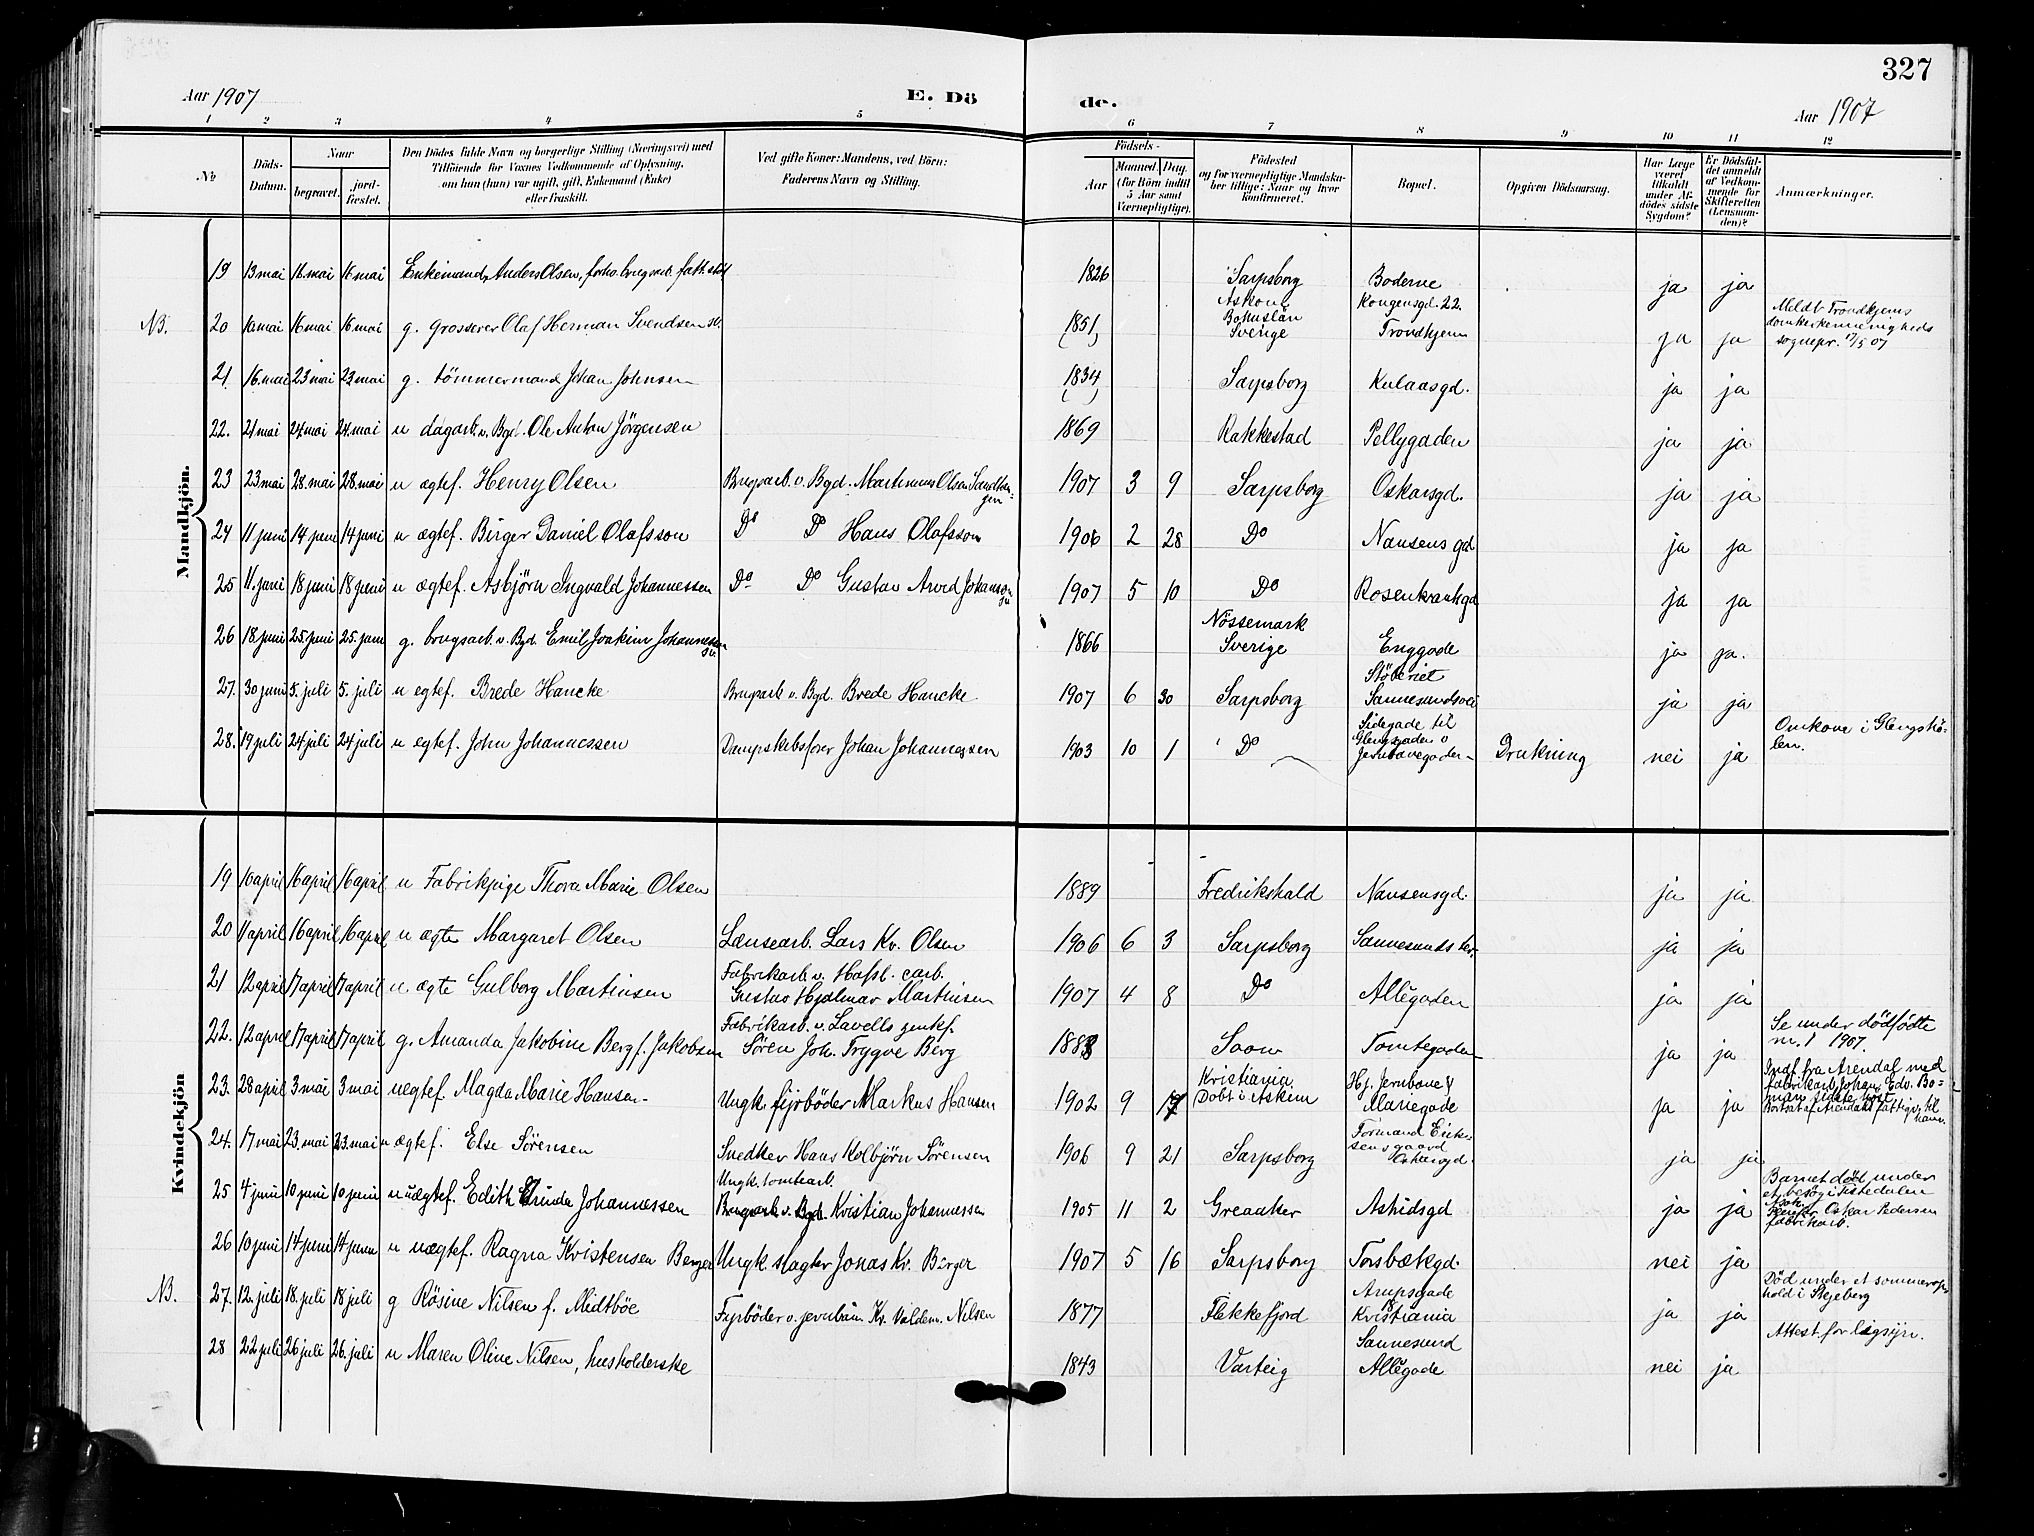 327
Aar 1907
E. Dö de.
Aar 1907
1 2 3 4 5 6 7 8 9 10 11 12
No
Döds-Datum.
Naar
begravet.
jord-fæstet.
Den Dödes fulde Navn og borgerlige Stilling (Næringsvei) med
Tilföiende for Voxnes Vedkommende af Oplysning,
om han (hun) var ugift, gift, Enkemand (Enke)
eller fraskilt.
Ved gifte Koner: Mandens, ved Börn:
Faderens Navn og Stilling.
Födsels-
Aar
Maaned. Dag.
(for Börn indtil
5 Aar samt
Værnepligtige).
Födested
og for værnepligtige Mandska-
ber tillige: Naar og hvor
konfirmeret.
Bopæl.
Opgiven Dödsaarsag.
Har Læge
været
tilkaldt
under Af-
dödes sidste
Sygdom?
Er Dödsfal-
det anmeldt
af Vedkom-
mende for
Skifteretten
(Lensman-
den)?
Anmærkninger.
Mandkjön.
19 13 mai 16. mai 16 mai Enkemand, Anders Olsen, forh. brugsarb. fatt. 1826 Sarpsborg Boderne ja ja
NB. 20 10 mai 16 mai 16. mai g. grosserer Olaf Herman Svendsen 1851 Askom Bohuslän Sverige Kongensgd. 22. Trondhjem ja ja Meldt Trondhjems domkirkemenigheds sognepr. 17/5 07
21. 16. mai 23 mai 23 mai g. tömmermand Johan Johnsen 1834 Sarpsborg Kulaasgd. ja ja
22. 21 mai 24 mai 24. mai u dagarb. v. Bgd. Ole Anton Jörgensen 1869 Rakkestad Pellygaden ja ja
23 23 mai 28. mai 28. mai u ægtef. Henry Olsen Brugsarb. v. Bgd. Martinius Olsen 1907 3 9 Sarpsborg Oskarsgd. ja ja
24 11 juni 14 juni 14 juni u ægtef. Birger Daniel Olafsson Do Do Hans Olafsson 1906 2 28 Do Nansens gd ja ja
25 11. juni 18 juni 18 juni u ægtef. Asbjörn Ingvald Johannessen Do Do Gustav Arvid Johansson 1907 5 10 Do Rosenkrantzgd ja ja
26 18 juni 25. juni 25. juni g. brugsarb. v. Bgd. Emil Joakim Johannessen 1866 Nössemark Sverige Enggade ja ja.
27. 30 juni 5. juli 5. juli u egtef. Brede Hancke Brugsarb v. Bgd. Brede Hancke 1907 6 30 Sarpsborg Störeriet Sannesundsvei ja ja
28. 19 juli 24 juli 24 juli u egtef. John Johannessen Dampskibsförer Johan Johannessen 1903 10 1 Do Sidegade til Glengsgaden v Jernbanegaden Drukning nei ja Omkom i Glengshölen.
Kvindekjön
19 10 april 16 april 16 april u Fabrikpige Thora Marie Olsen 1889 Fredrikshald Nansensgd. ja ja
20 11 april 16 april 16 april u ægte Margaret Olsen Lænsearb. Lars Kr. Olsen 1906 6 3 Sarpsborg Sannesunds ja ja
21 12 april 17 april 17 april u ægte Gulborg Martinsen Fabrikarb v. Hafsl. carb. Gustav Hjalmar Martinsen 1907 4 8 Do Allégaden ja ja
22. 12 april 17 april 17 april g. Amanda Jakobine Berg f. Jakobsen Fabrikarb. v. Lavells gentef. Sören Joh. Trygve Berg 1883 Soon Tomtegaden ja ja Se under dödfödte nr. 1 1907.
23. 28 april 3 mai 3 mai uegtef. Magda Marie Hansen Ungk. fyrböder Markus Hansen 1902 9 17 Kristiania Döbt i Askim Hj. Jernbane & Mariegade ja ja Indf. fra Arendal med fabrikarb. Johan Edv. Boman sidste höst. Bortsat af Arendals fattigv. til ham.
24. 17 mai 23. mai 23. mai u ægtef. Else Sörensen Snedker Hans Kolbjörn Sörensen 1906 9 21 Sarpsborg Formand Eriksens gaard Oskarsgd. ja ja
25 4 juni 10 juni 10 juni u uægtef. Edith Johannessen Ungk. tomtearb. Kristian Johannessen 1905 11 2 Greaaker Astridsgd ja ja Barnet död under et besög i Tistedalen Oskar Pedersen fabrikarb.
26 10 juni 14 juni 14 juni u uægtef. Ragna Kristensen Berger Ungk. slagter Jonas Kr. Berger 1907 5 16 Sarpsborg Torsbækgd. nei ja
NB. 27. 12. juli 18. juli 18 juli g Rösine Nilsen f. Midtböe Fyrböder v. jernban Kr. Valdem. Nilsen 1877 Flekkefjord Arupsgade 18 Kristiania ja ja Död under et sommerophold i Skjeberg
28 22 juli 26 juli 26. juli u Maren Oline Nilsen, husholderske 1843 Varteig Sannesund Allégade nei ja Attest for ligsyn.